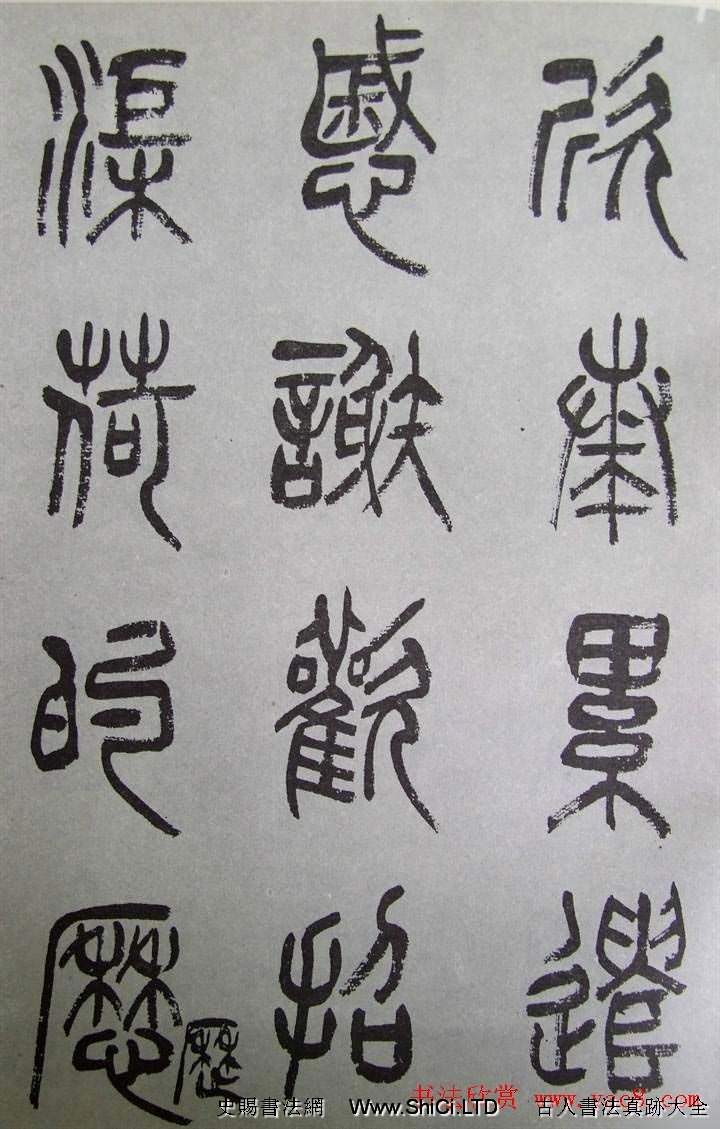 欣奏累遣
慼謝歡招
渠荷的
歷
书法欣赏 www.yac8.com
史賜書法網 Www.ShiCi.LTD 古人書法真跡大全